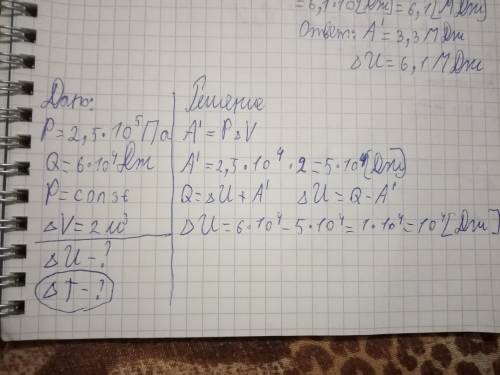 = 6,1·10⁶[Дж] = 6,1[МДж]
Ответ: A' = 3,3 МДж
ΔU = 6,1 МДж
Дано:
P = 2,5·10⁵ Па
Q = 6·10⁴ Дж
P = const
ΔV = 2 м³
ΔU - ?
ΔT - ?
Решение
A' = PΔV
A' = 2,5·10⁴·2 = 5·10⁴[Дж]
Q = ΔU + A' ΔU = Q - A'
ΔU = 6·10⁴ - 5·10⁴ = 1·10⁴ = 10⁴[Дж]